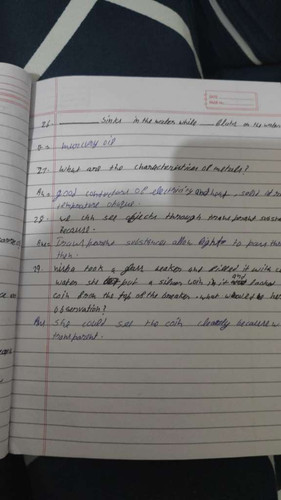 26. ______ Sinks in the water while ____ floats on the water
Ans Mercury oil
27. What are the characteristics of metals?
Ans good conductors of electricity and heat, solid at room
temperature opaque
28. We can see objects through transparent
because.
Ans Transparent substances allow light to pass through
them.
29. took a glass beaker and filled it with
water she put a silver coin in it and looked
coin from the top of the beaker. what would be her
observation?
Ans She could see the coin clearly because
transparent.